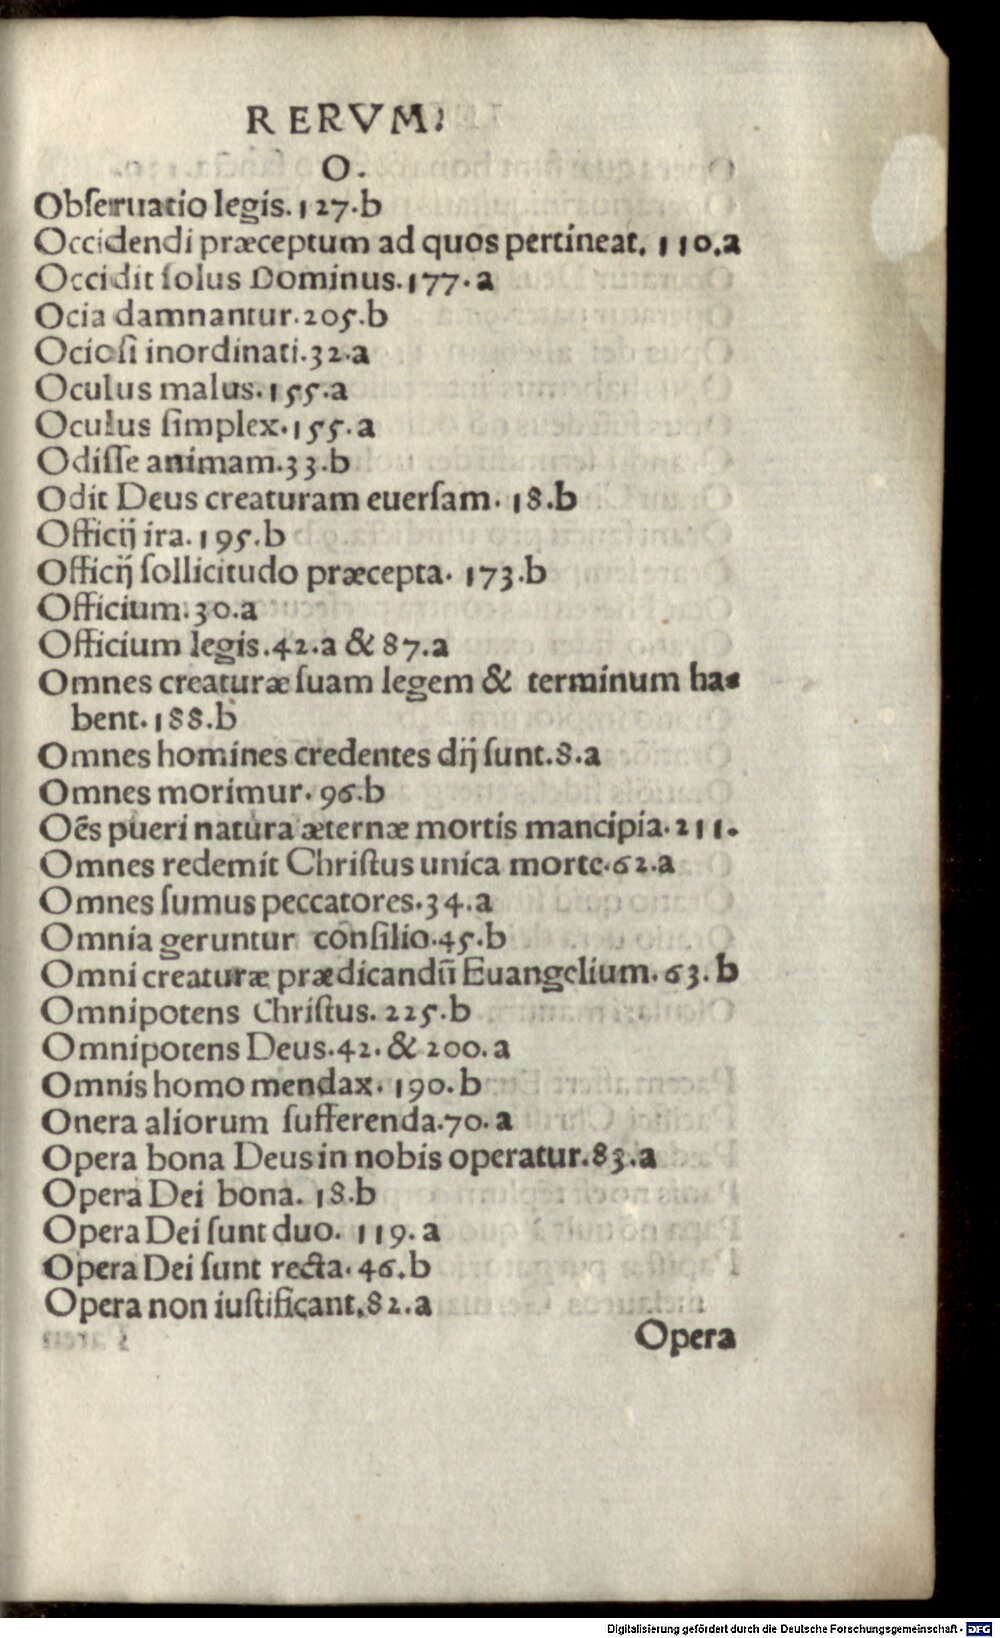 RERVM.
O.
Obſeruatio legis. 127.b
Occidendi præceptum ad quos pertineat. 110.a
Occidit ſolus Dominus. 177.a
Ocia damnantur. 205.b
Ocioſi inordinati. 32.a
Oculus malus. 155.a
Oculus ſimplex. 155.a
Odiſſe animam. 33.b
Odit Deus creaturam euerſam. 18.b
Officij ira. 195.b
Officij ſollicitudo præcepta. 173.b
Officium. 30.a
Officium legis. 42.a & 87.a
Omnes creaturæ ſuam legem & terminum ha-
bent. 188.b
Omnes homines credentes dij ſunt. 8.a
Omnes morimur. 96.b
Oēs pueri natura æternæ mortis mancipia. 211.
Omnes redemit Chriſtus unica morte. 62.a
Omnes ſumus peccatores. 34.a
Omnia geruntur conſilio. 45.b
Omni creaturæ prædicandū Euangelium. 63.b
Omnipotens Chriſtus. 225.b
Omnipotens Deus. 42. & 200.a
Omnis homo mendax. 190.b
Onera aliorum ſufferenda. 70.a
Opera bona Deus in nobis operatur. 83.a
Opera Dei bona. 18.b
Opera Dei ſunt duo. 119.a
Opera Dei ſunt recta. 46.b
Opera non iuſtificant. 82.a
Opera
Digitalisierung gefördert durch die Deutsche Forschungsgemeinschaft - DFG